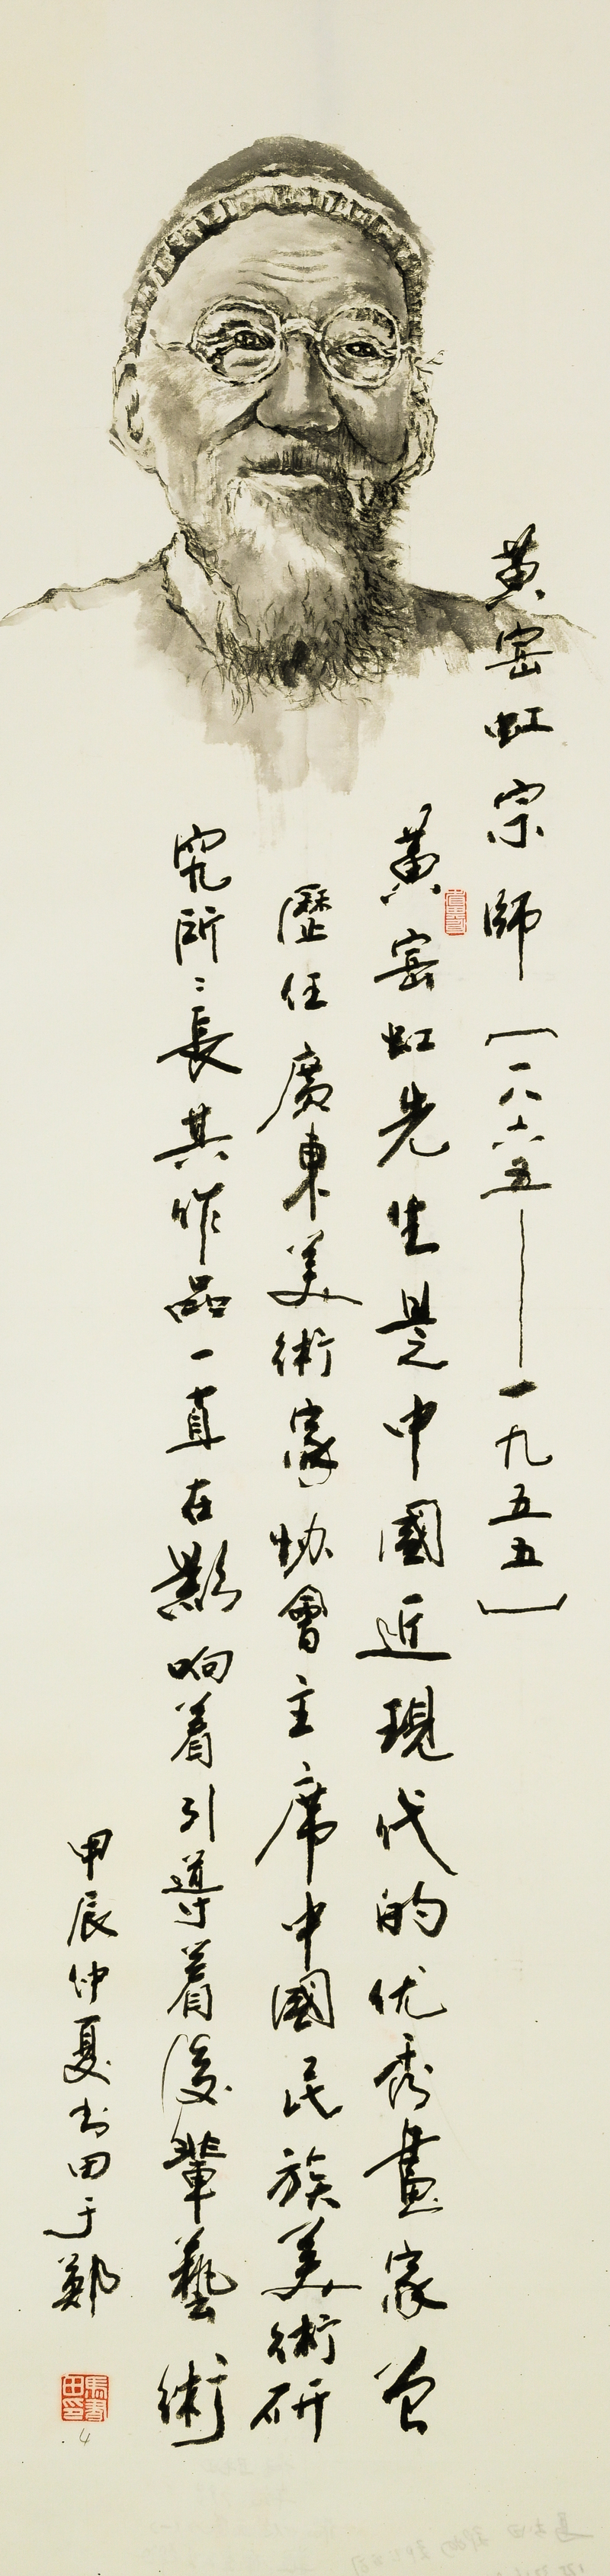 黄宾虹宗師［一八六五——一九五五］
黄宾虹先生是中國近現代的优秀畫家曾
歷任廣東美術家协會主席中國民族美術研
究所〻長其作品一直在影响着引導着後輩藝術
甲辰仲夏书田于鄭
馬書田印
4